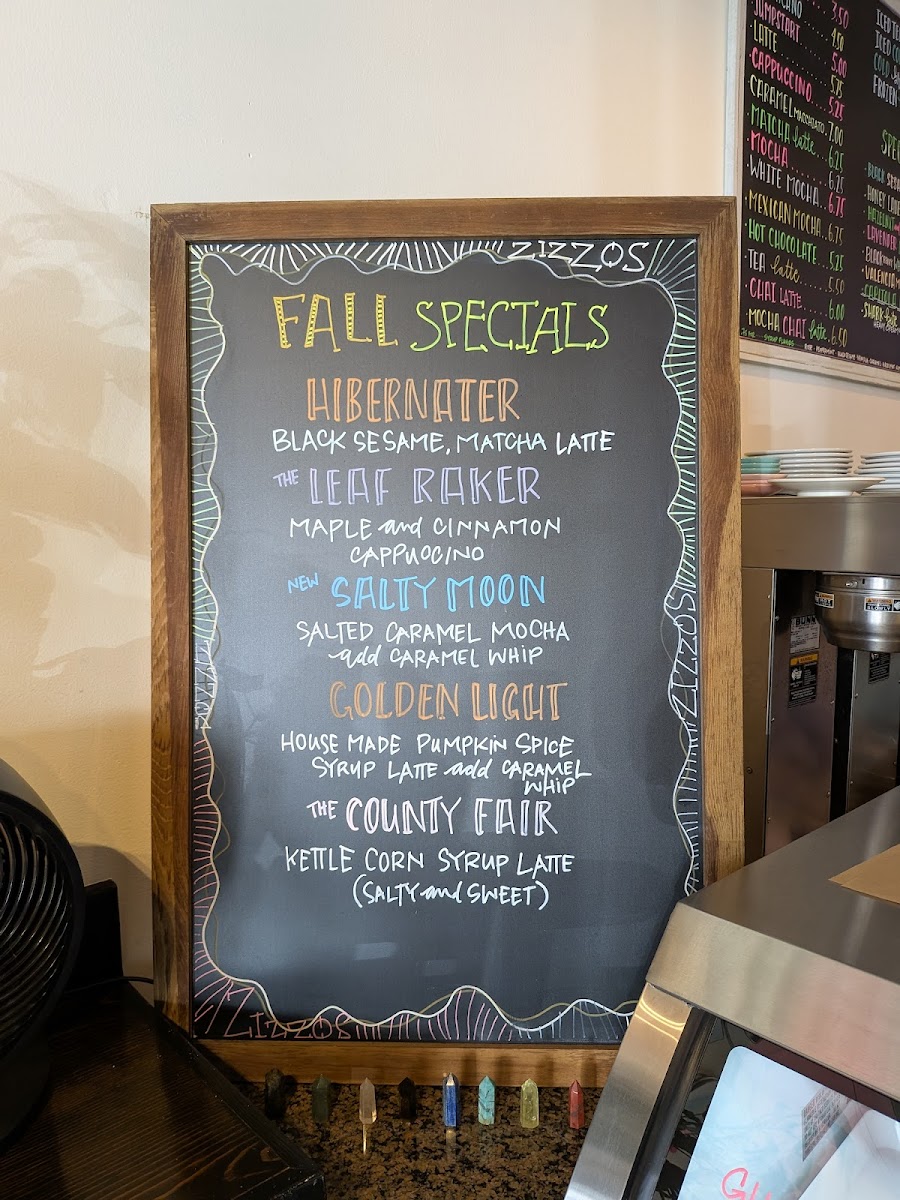 ZIZZOS
FALL SPECIALS
HIBERNATER
BLACK SESAME, MATCHA LATTE
THE LEAF RAKER
MAPLE and CINNAMON
CAPPUCCINO
NEW SALTY MOON
SALTED CARAMEL MOCHA
add CARAMEL WHIP
GOLDEN LIGHT
HOUSE MADE PUMPKIN SPICE
SYRUP LATTE add CARAMEL
WHIP
THE COUNTY FAIR
KETTLE CORN SYRUP LATTE
(SALTY and SWEET)
ZIZZOS
ZIZZOS
ZIZZOS
3.50
JUMPSTART 4.50
LATTE 5.00
5.75
CAPPUCCINO 5.25
CARAMEL MACCHIATO 7.00
MATCHA latte 6.25
MOCHA 6.25
WHITE MOCHA 6.75
MEXICAN MOCHA 6.75
HOT CHOCOLATE 5.25
TEA latte 5.50
CHAI LATTE 6.00
MOCHA CHAI latte 6.50
ICED
COLD
FROZEN
BLACK
LAVENDER
BUNN